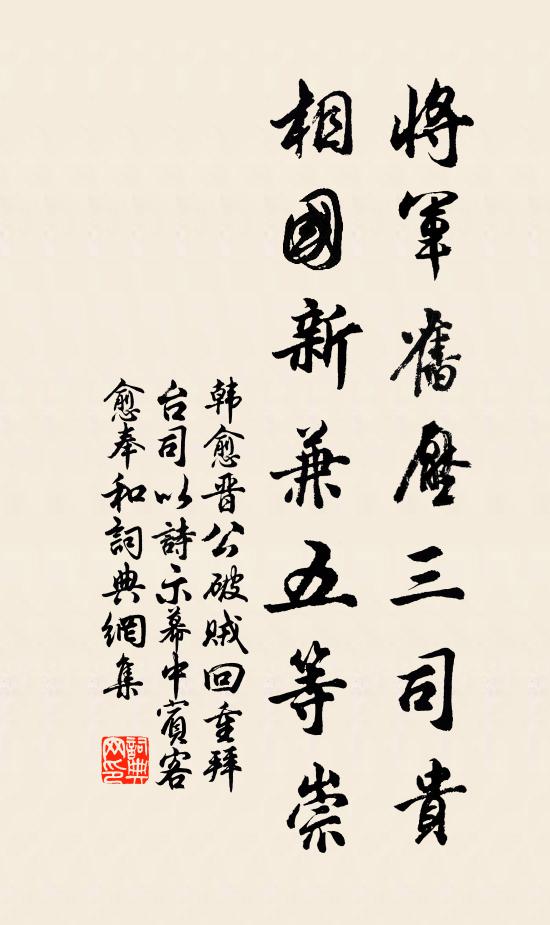 將軍舊壓三司貴
相國新兼五等崇
韩愈晋公破贼回重拜
台司以詩示幕中賓客
愈奉和詞典網集
詞典網印